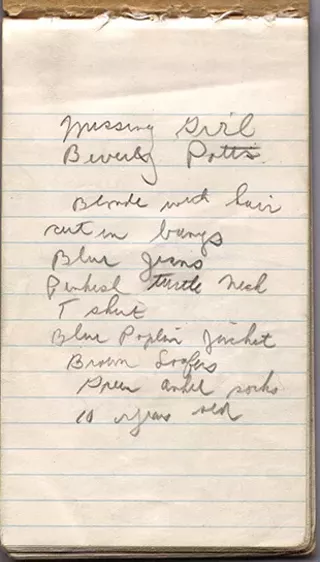 Missing Girl
Beverly Potts
Blonde with hair
cut in bangs
Blue Jeans
Pinkish turtle neck
T shirt
Blue Poplin Jacket
Brown Loafers
Green ankle socks
10 years old